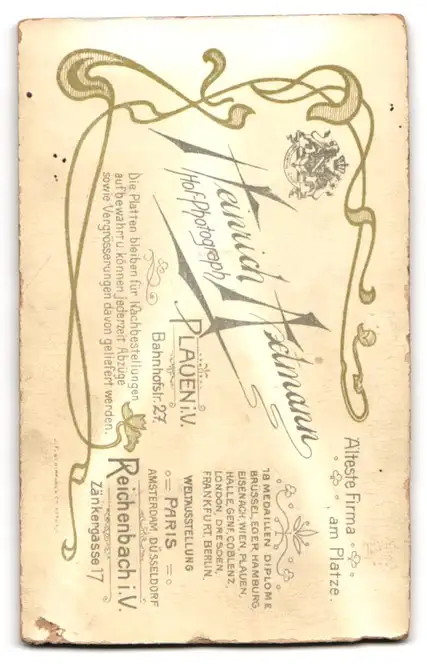 Älteste Firma
am Platze.
Heinrich Axtmann
Hof-Photograph
18 MEDAILLEN DIPLOME
BRÜSSEL, EGER, HAMBURG,
EISENACH, WIEN, PLAUEN,
HALLE, GENF, COBLENZ,
LONDON, DRESDEN,
FRANKFURT, BERLIN.
WELTAUSSTELLUNG
PARIS
AMSTERDAM, DÜSSELDORF
PLAUEN i.V.
Bahnhofstr. 27.
Reichenbach i.V.
Zänkergasse 17
Die Platten bleiben für Nachbestellungen
aufbewahrt u. können jederzeit Abzüge
sowie Vergrösserungen davon geliefert werden.